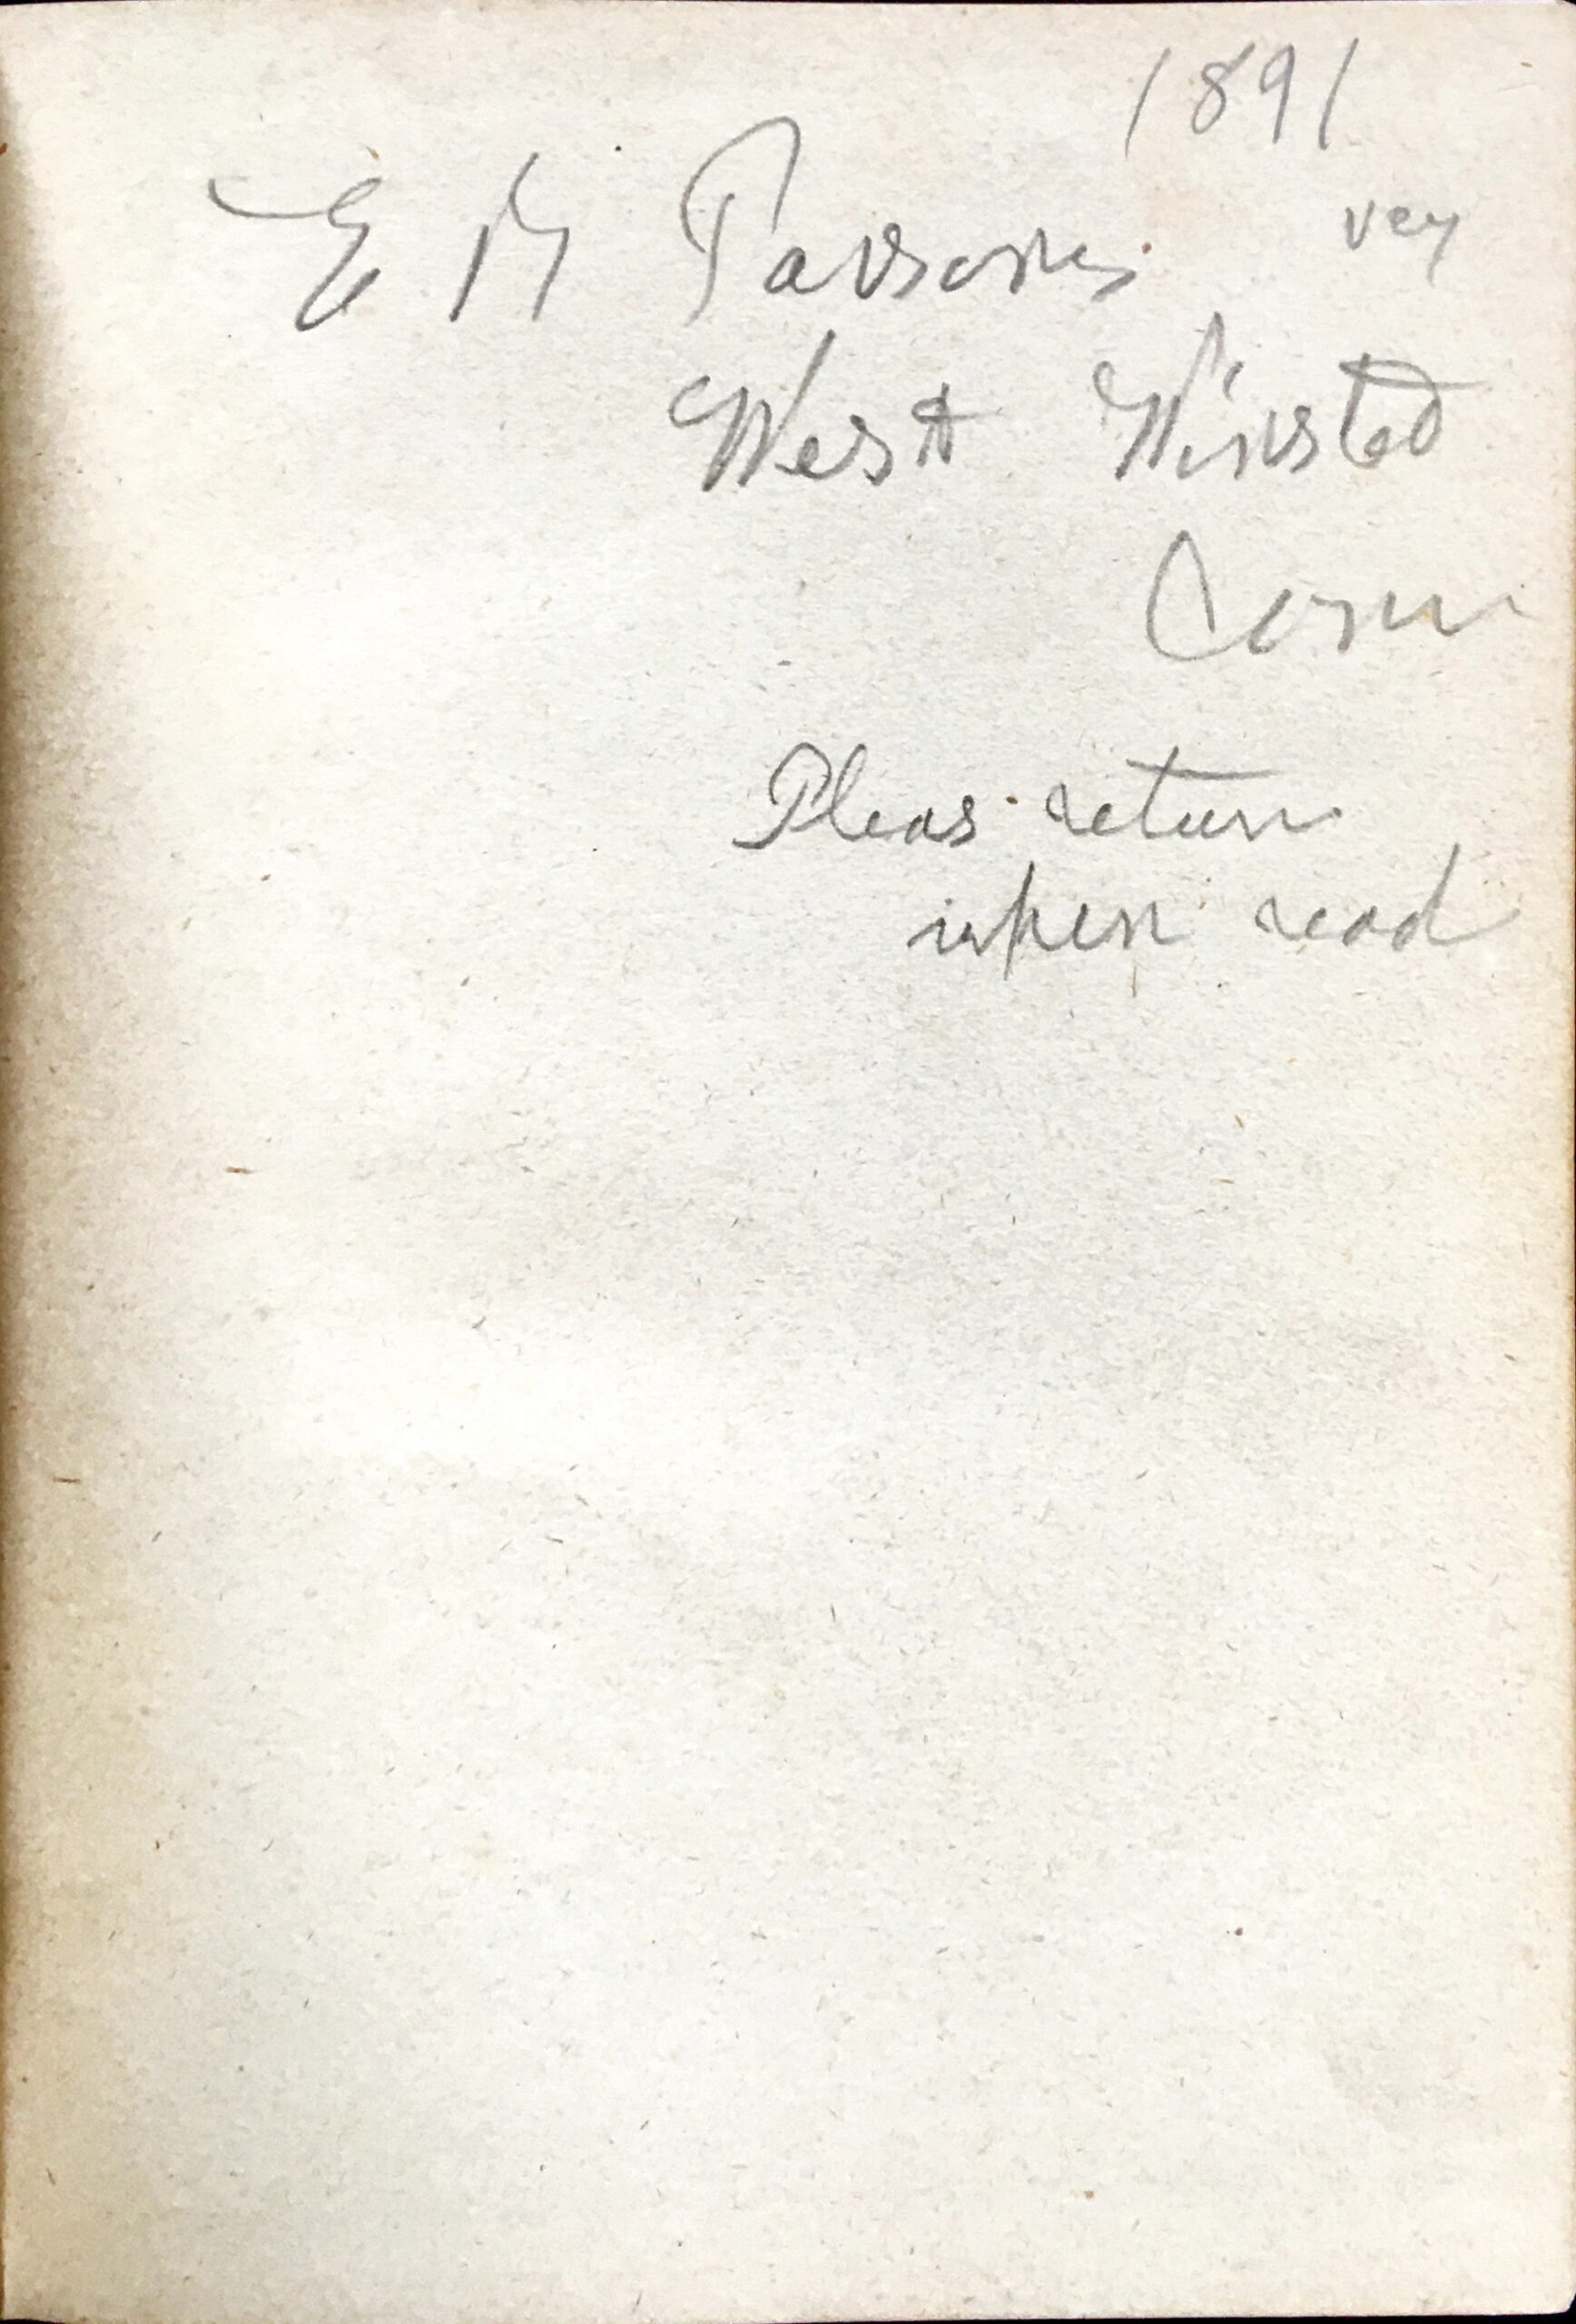 1891
E M Parsons vey
West Winsted
Conn
Pleas return
when read